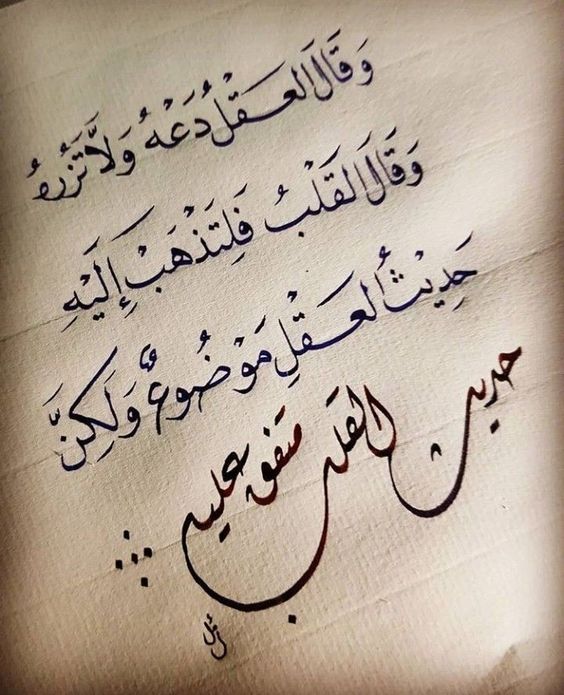 وَقَالَ العَقْلُ دَعْهُ وَلَا تَزُرْهُ
وَقَالَ القَلْبُ فَلِتَذْهَبْ إِلَيْهِ
حَدِيْثُ العَقْلِ مَوْضُوعٌ وَلَكِنَّ
حديث القلب متفق عليه